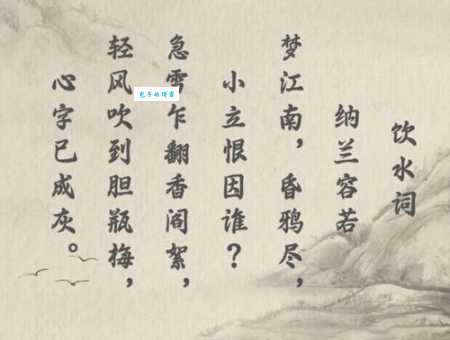 饮水词
纳兰容若
梦江南，昏鸦尽，
小立恨因谁？
急雪乍翻香阁絮，
轻风吹到胆瓶梅，
心字已成灰。